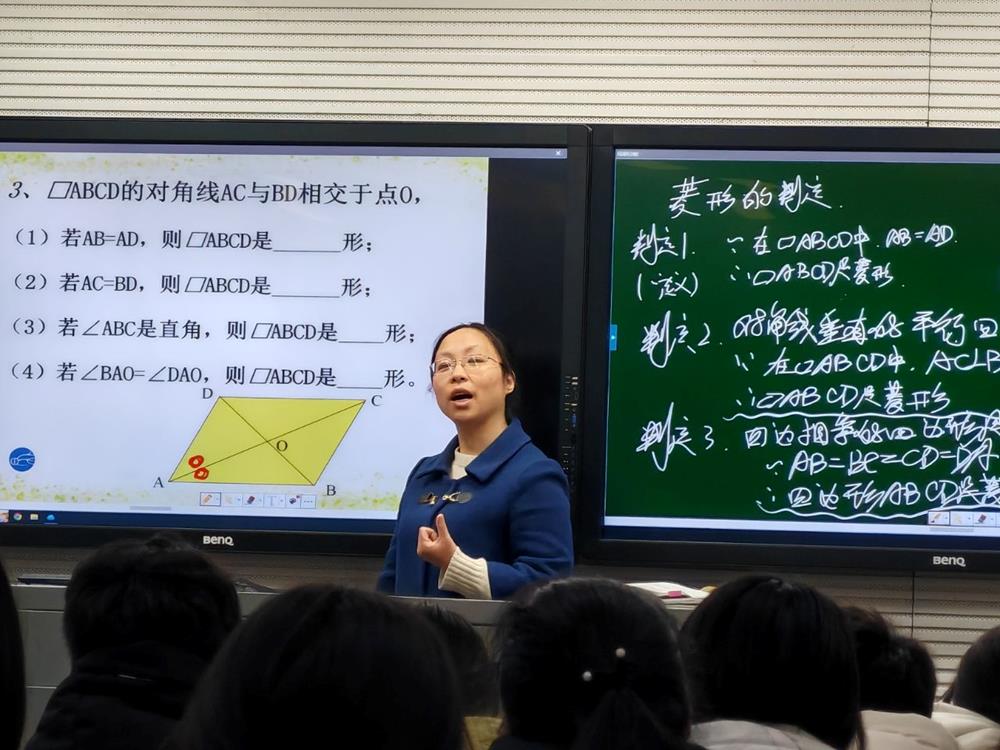 3、▱ABCD的对角线AC与BD相交于点O，
（1）若AB=AD，则▱ABCD是______形；
（2）若AC=BD，则▱ABCD是______形；
（3）若∠ABC是直角，则▱ABCD是____形；
（4）若∠BAO=∠DAO，则▱ABCD是____形。
D
C
O
A
B
BenQ
菱形的判定.
判定1. ∵在▱ABCD中.AB=AD.
(定义) ∴▱ABCD是菱形.
判定2. 对角线垂直的平行四
∵在▱ABCD中，AC⊥B
∴▱ABCD是菱形
判定3. 四边相等的四边形是
∵AB=BC=CD=DA
∴四边形ABCD是菱
BenQ